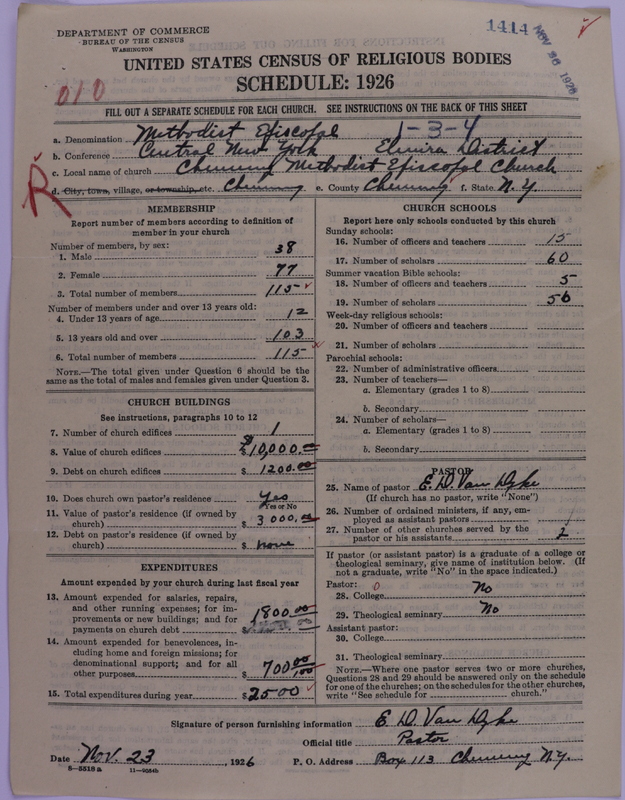 DEPARTMENT OF COMMERCE
BUREAU OF THE CENSUS
WASHINGTON
1414
NOV 26 1926
UNITED STATES CENSUS OF RELIGIOUS BODIES
SCHEDULE: 1926
010
FILL OUT A SEPARATE SCHEDULE FOR EACH CHURCH. SEE INSTRUCTIONS ON THE BACK OF THIS SHEET
a. Denomination Methodist Episcopal 1-3-4
b. Conference Central New York Elmira District
c. Local name of church Chemung Methodist Episcopal Church
R
d. City, town, village, or township, etc. Chemung e. County Chemung f. State N.Y.
MEMBERSHIP
Report number of members according to definition of member in your church
Number of members, by sex:
1. Male 38
2. Female 77
3. Total number of members 115
Number of members under and over 13 years old:
4. Under 13 years of age 12
5. 13 years old and over 103
6. Total number of members 115
NOTE.—The total given under Question 6 should be
same as the total of males and females given under Question 3.
CHURCH BUILDINGS
See instructions, paragraphs 10 to 12
7. Number of church edifices 1
8. Value of church edifices $10,000.00
9. Debt on church edifices $ 1200.00
10. Does church own pastor's residence Yes
Yes or No
11. Value of pastor's residence (if owned by
church) $ 3000.00
12. Debt on pastor's residence (if owned by
church) $ none
EXPENDITURES
Amount expended by your church during last fiscal year
13. Amount expended for salaries, repairs,
and other running expenses; for im-
provements or new buildings; and for
payments on church debt $ 1800.00
14. Amount expended for benevolences, in-
cluding home and foreign missions; for
denominational support; and for all
other purposes $ 700.00
15. Total expenditures during year $2500
CHURCH SCHOOLS
Report here only schools conducted by this church
Sunday schools:
16. Number of officers and teachers 15
17. Number of scholars 60
Summer vacation Bible schools:
18. Number of officers and teachers 5
19. Number of scholars 56
Week-day religious schools:
20. Number of officers and teachers
21. Number of scholars
Parochial schools:
22. Number of administrative officers
23. Number of teachers—
a. Elementary (grades 1 to 8)
b. Secondary
24. Number of scholars—
a. Elementary (grades 1 to 8)
b. Secondary
PASTOR
25. Name of pastor E. D. Van Dyke
(If church has no pastor, write "None")
26. Number of ordained ministers, if any, em-
ployed as assistant pastors
27. Number of other churches served by the
pastor or his assistants 1
If pastor (or assistant pastor) is a graduate of a college or
theological seminary, give name of institution below. (If
not a graduate, write "No" in the space indicated.)
Pastor: 0
28. College No
29. Theological seminary No
Assistant pastor:
30. College
31. Theological seminary
NOTE.—Where one pastor serves two or more churches,
Questions 28 and 29 should be answered only on the schedule
for one of the churches; on the schedules for the other churches,
write "See schedule for church."
Signature of person furnishing information E. D. Van Dyke
Official title Pastor
Date Nov. 23, 1926 P. O. Address Box 113 Chemung N.Y.
8—5518 a 11—9054b